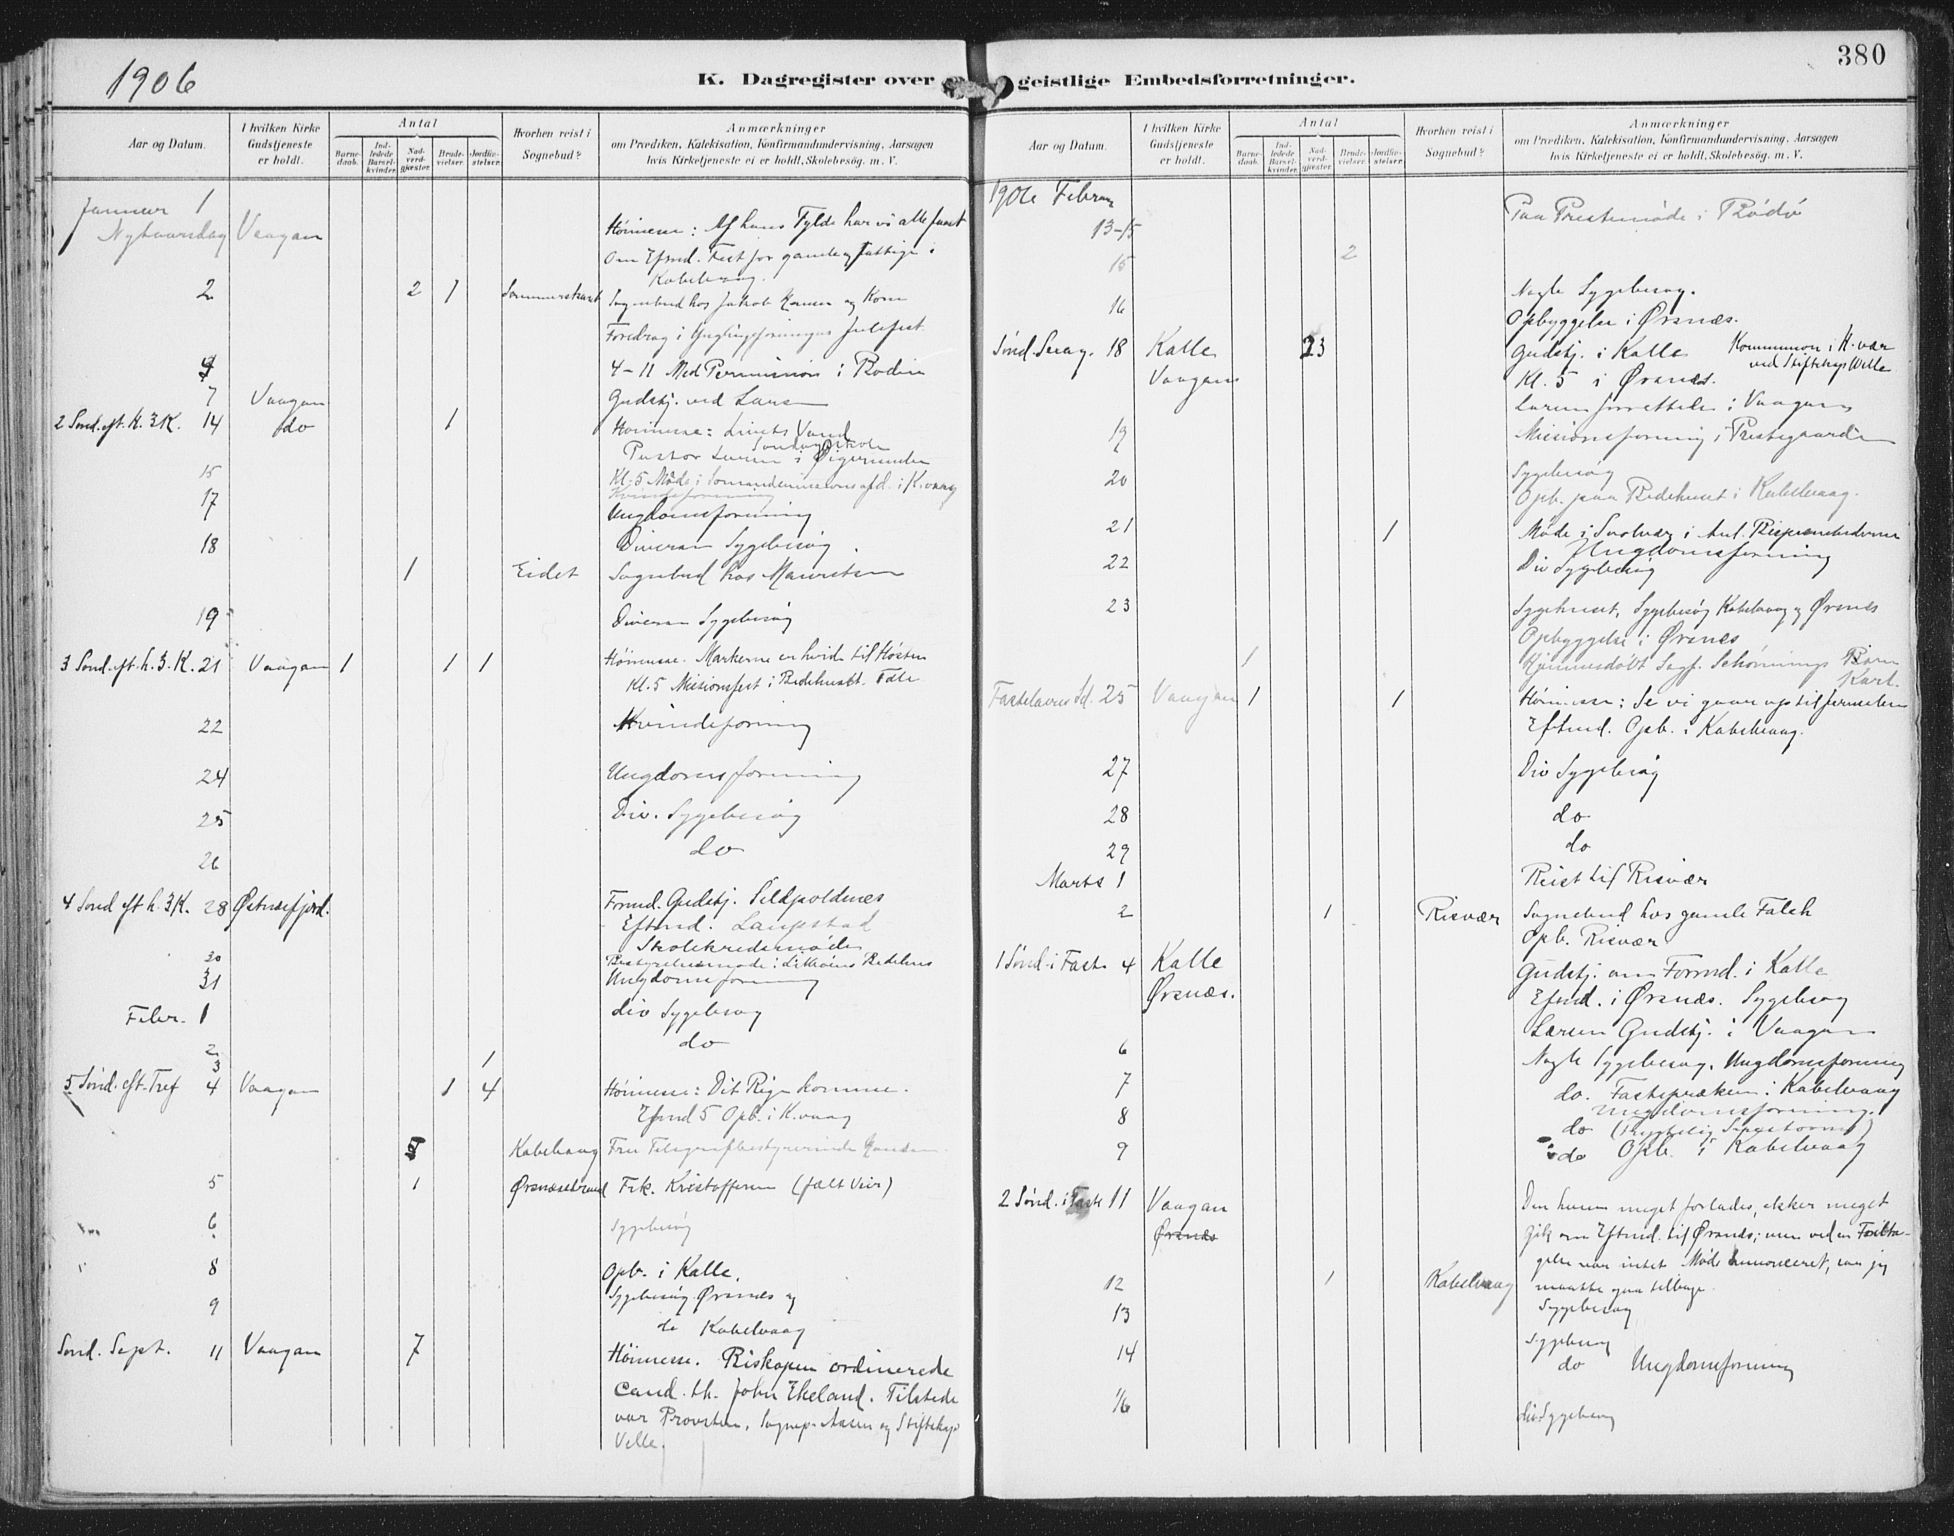 380
1906
K. Dagregister over geistlige Embedsforretninger.
Aar og Datum.
I hvilken Kirke Gudstjeneste er holdt.
Antal
Barnedaab.
Indledede Barselkvinder.
Nadverdgjæster.
Brudevielser.
Jordfæstelser.
Hvorhen reist i Sognebud?
Anmærkninger
om Prædiken, Katekisation, Konfirmandundervisning, Aarsagen
hvis Kirketjeneste ei er holdt, Skolebesøg. m. V.
Januar 1
Nytaarsdag Vaagan Høimesse: Af hans Fylde har vi alle faaet
Om Efmd. Fest for gamle og fattige i
Kabelvaag.
2 2 1 Sognebud hos Jakob
Foredrag i Julefest
4-11 Med Permission i Bodin
7 Vaagan Gudstj. ved Larsen
2 Sønd. eft. h. 3 K. 14 do 1 Høimesse: Livets Vand
Søndagsskole
Pastor Larsen i
15 Kl. 5 Møde i i K.vaag
Kvindeforening
17 Ungdomsforening
18 Diverse Sygebesøg.
1 Eidet Sognebud hos Mauritsen
19 Diverse Sygebesøg
3 Sønd. eft. h. 3. K. 21 Vaagan 1 1 1 Høimesse. Markerne er hvide til Høsten
Kl. 5 Misionsfest i Bedehuset. Tale
22 Kvindeforening
24 Ungdomsforening
25 Div. Sygebesøg
26 do
4 Sønd eft h. 3 K. 28 Østnesfjord. Formd. Gudstj. Sildpoldnes
Eftmd. Laupstad
Skolekredsmøde
30 Bestyrelsesmøde i Bedehus
31 Ungdomsforening
Febr. 1 div Sygebesøg
2 do
3 1
5 Sønd. eft. Tref 4 Vaagan 1 4 Høimesse: Dit Rige komme.
Efmd 5 Opb. i K.vaag
Kabelvaag Fru Telegrafbestyrerinde
5 1 Ørsnesstrand Frk. Kristoffersen
6 Sygebesøg
8 Opb. i Kalle.
9 Sygebesøg Ørsnes og
do Kabelvaag
Sønd. Sept. 11 Vaagan 7 Høimesse. Biskopen ordinerede
Cand. th. John Ekeland. Tilstede
var Provsten, Sognepr. Aasen og Stiftskap
Velle.
Aar og Datum.
I hvilken Kirke Gudstjeneste er holdt.
Antal
Barnedaab.
Indledede Barselkvinder.
Nadverdgjæster.
Brudevielser.
Jordfæstelser.
Hvorhen reist i Sognebud?
Anmærkninger
om Prædiken, Katekisation, Konfirmandundervisning, Aarsagen
hvis Kirketjeneste ei er holdt, Skolebesøg. m. V.
1906 Februar
13-15 Paa Prestemøde i Bodø
15 2
16 Nogle Sygebesøg.
Opbyggelse i Ørsnes.
Sønd. Sexag. 18 Kalle 23 Gudstj. i Kalle Kommunion i H.vær
ved Stiftskap Velle
Vaagan Kl. 5 i Ørsnes.
Larsen forrettede i Vaagan
19 Misionsforening i Prestegaarden
20 Sygebesøg
Opb. paa Bedehuset i Kabelvaag.
21 1 Møde i Svolvær i Anl.
22 Ungdomsforening
Div Sygebesøg
23 Sygehuset, Sygebesøg Kabelvaag og Ørsnes
Opbyggelse i Ørsnes
1 Hjemmedøbt Sagf. Schønnings Barn
Karl.
Fastelavns Sd. 25 Vaagan 1 1 Høimesse: Se vi gaar op til Jerusalem
Eftmd. Opb. i Kabelvaag.
27 Div Sygebesøg
28 do
29 do
Marts 1 Reist til Risvær
2 1 Risvær Sognebud hos gamle Falch
Opb. Risvær
1 Sønd. i Faste 4 Kalle Gudstj. om Formd. i Kalle
Ørsnæs. Efmd. i Ørsnæs. Sygebesøg
Larsen Gudstj. i Vaagan
6 Nogle Sygebesøg. Ungdomsforening
7 do. Fastepræken i Kabelvaag
Ungdomsforening.
8 do
9 do Opb. i Kabelvaag
2 Sønd. i Faste 11 Vaagan Den husen meget forlades, ekker meget
Ørsnæs Gik om Eftmd. til Ørsnes; men ved en Forbta-
gelse var intet Møde annonceret, saa jeg
12 1 Kabelvaag maatte gaa tilbage.
13 Sygebesøg
Sygebesøg
14 do Ungdomsforening
16 div. Sygebesøg